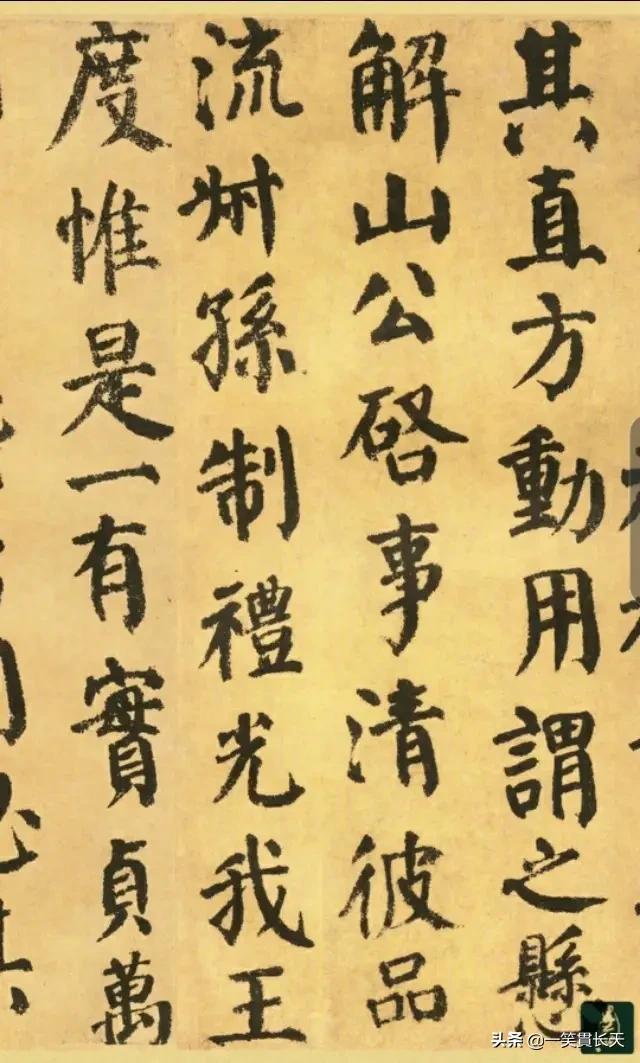 其直方動用謂之懸
解山公啓事清彼品
流叔孫制禮光我王
度惟是一有實貞萬
头条 @一笑貫长天